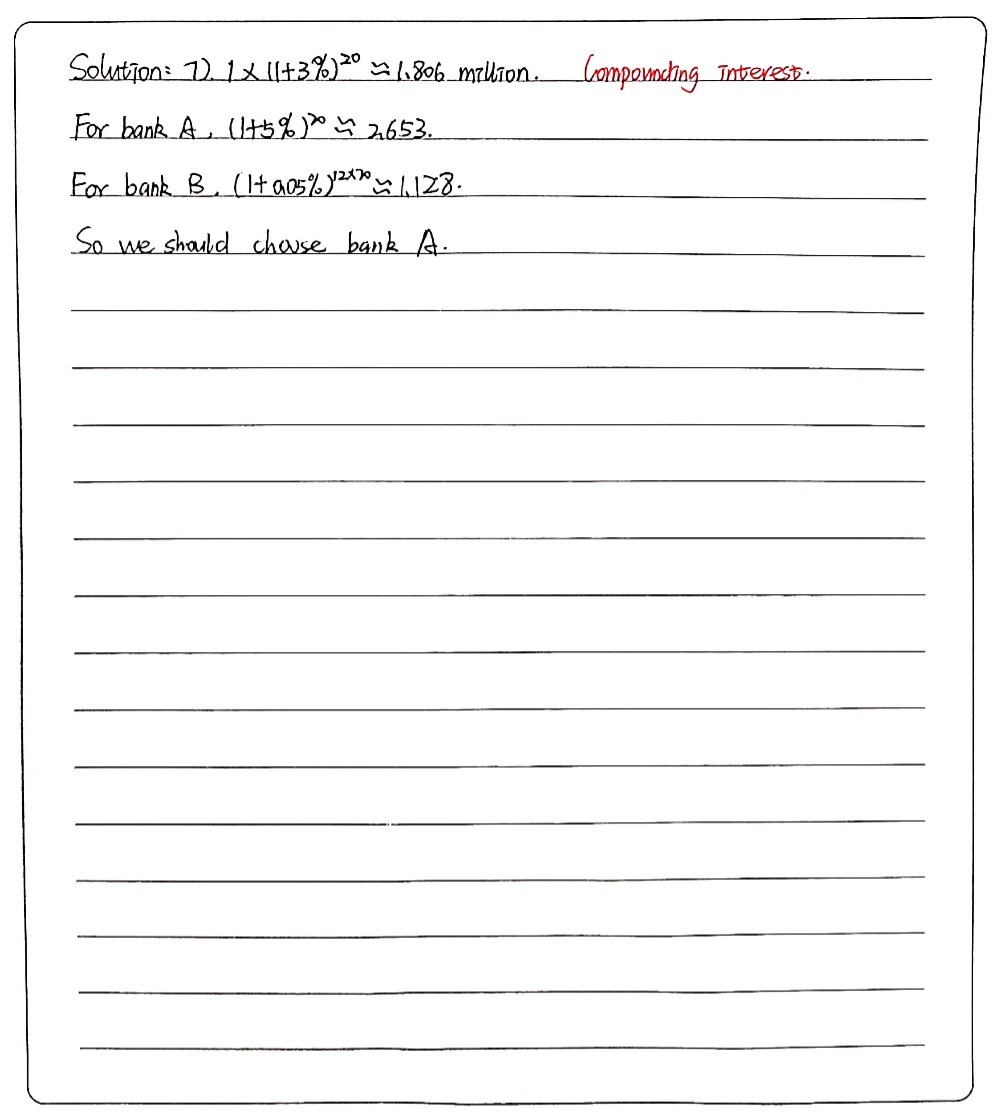 Solution: 7). 1 × (1+3%)^20 ≈ 1.806 million. Compounding interest.
For bank A, (1+5%)^20 ≈ 2.653.
For bank B, (1+0.05%)^12×20 ≈ 1.128.
So we should choose bank A.